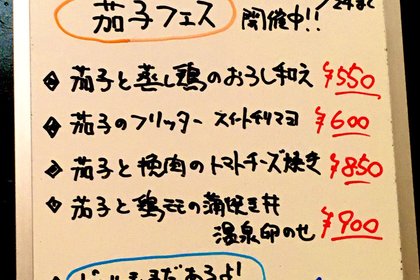 茄子フェス 開催中!! /24まで
茄子と蒸し鶏のおろし和え ¥550
茄子のフリッター スイートチリマヨ ¥600
茄子と挽肉のトマトチーズ焼き ¥850
茄子と鶏モモの蒲焼き丼
温泉卵のせ ¥900
まだあるよ!